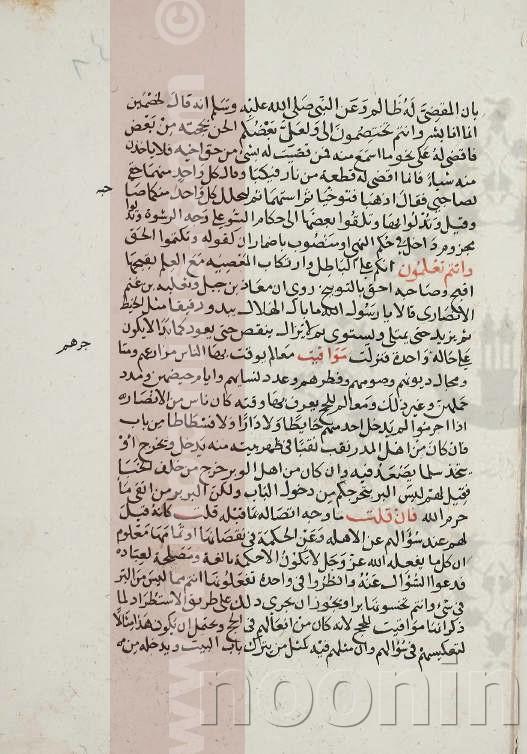 بان المقضى له ظالم وعن النبي صلى الله عليه وسلم انه قال لخصمين
انما انا بشر وانتم تختصمون الى ولعل بعضكم الحن بحجته من بعض
فاقضى له على نحو ما اسمع منه فمن قضيت له بشئ من حق اخيه فلا ياخذن
منه شياء فانما اقضى له قطعة من نار فبكيا وقال كل واحد منهما حقى
لصاحبي فقال اذهبا فتوخيا ثم استهما ثم ليحلل كل واحد منكما صاحبه
وقيل وتدلوا بها وتلقوا بعضها الى حكام السوء على وجه الرشوة وتدلوا
مجزوم داخل في حكم النهى او منصوب باضمار ان كقوله وتكتموا الحق
وانتم تعلمون انكم على الباطل وارتكاب المعصية مع العلم بقبحها
اقبح وصاحبه احق بالتوبيخ روى ان معاذ بن جبل وثعلبة بن غنم
الانصارى قالا يا رسول الله ما بال الهلال يبدو دقيقا مثل الخيط
ثم يزيد حتى يمتلى ويستوى ثم لا يزال ينقص حتى يعود كما بدا لا يكون
على حالة واحدة فنزلت مواقيت معالم يوقت بها الناس مزارعهم ومتاجرهم
ومحال ديونهم وصومهم وفطرهم وعدد نسائهم وايام حيضهن ومدد
حملهن وغير ذلك ومعالم للحج يعرف بها وقته كان ناس من الانصار
اذا احرموا لم يدخل احد منهم حايطا ولا دارا ولا فسطاطا من باب
فان كان من اهل المدر نقب نقبا في ظهر بيته منه يدخل ويخرج او
يتخذ سلما يصعد فيه وان كان من اهل الوبر خرج من خلف الخباء
فقيل لهم ليس البر بتحرجكم من دخول الباب ولكن البر بر من اتقى ما
حرم الله فان قلت ما وجه اتصاله بما قبله قلت كانه قيل
لهم عند سؤالهم عن الاهلة وعن الحكمة في نقصانها وتمامها معلوم
ان كل ما يفعله الله عز وجل لا يكون الا حكمة بالغة ومصلحة لعباده
فدعوا السؤال عنه وانظروا في واحدة تفعلونها انتم مما ليس من البر
في شئ وانتم تحسبونها برا ويجوز ان يجرى ذلك على طريق الاستطراد لما
ذكر انها مواقيت للحج لانه كان من افعالهم في الحج ويحتمل ان يكون هذا تمثيلا
لتعكيسهم في سؤالهم وان مثلهم فيه كمثل من يترك باب البيت ويدخله من
جرهم
noonin